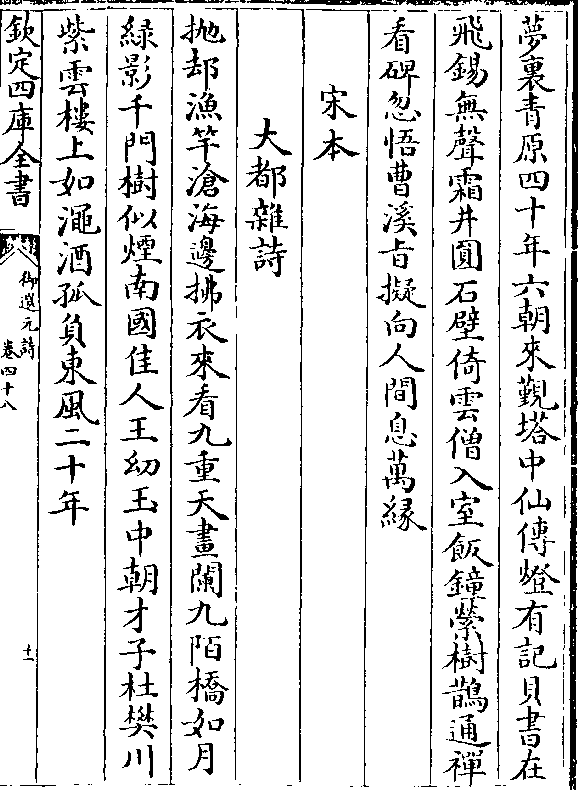 夢裏青原四十年六朝來覲塔中仙傳燈有記貝書在
飛錫無聲霜井圓石壁倚雲僧入室飯鐘縈樹鵲通禪
看碑忽悟曹溪旨擬向人間息萬縁
宋本
大都雜詩
抛却漁竿滄海邊拂衣來看九重天畫闌九陌橋如月
緑影千門樹似煙南國佳人王幼玉中朝才子杜樊川
紫雲樓上如澠酒孤負東風二十年
欽定四庫全書
御選元詩
卷四十八
十一